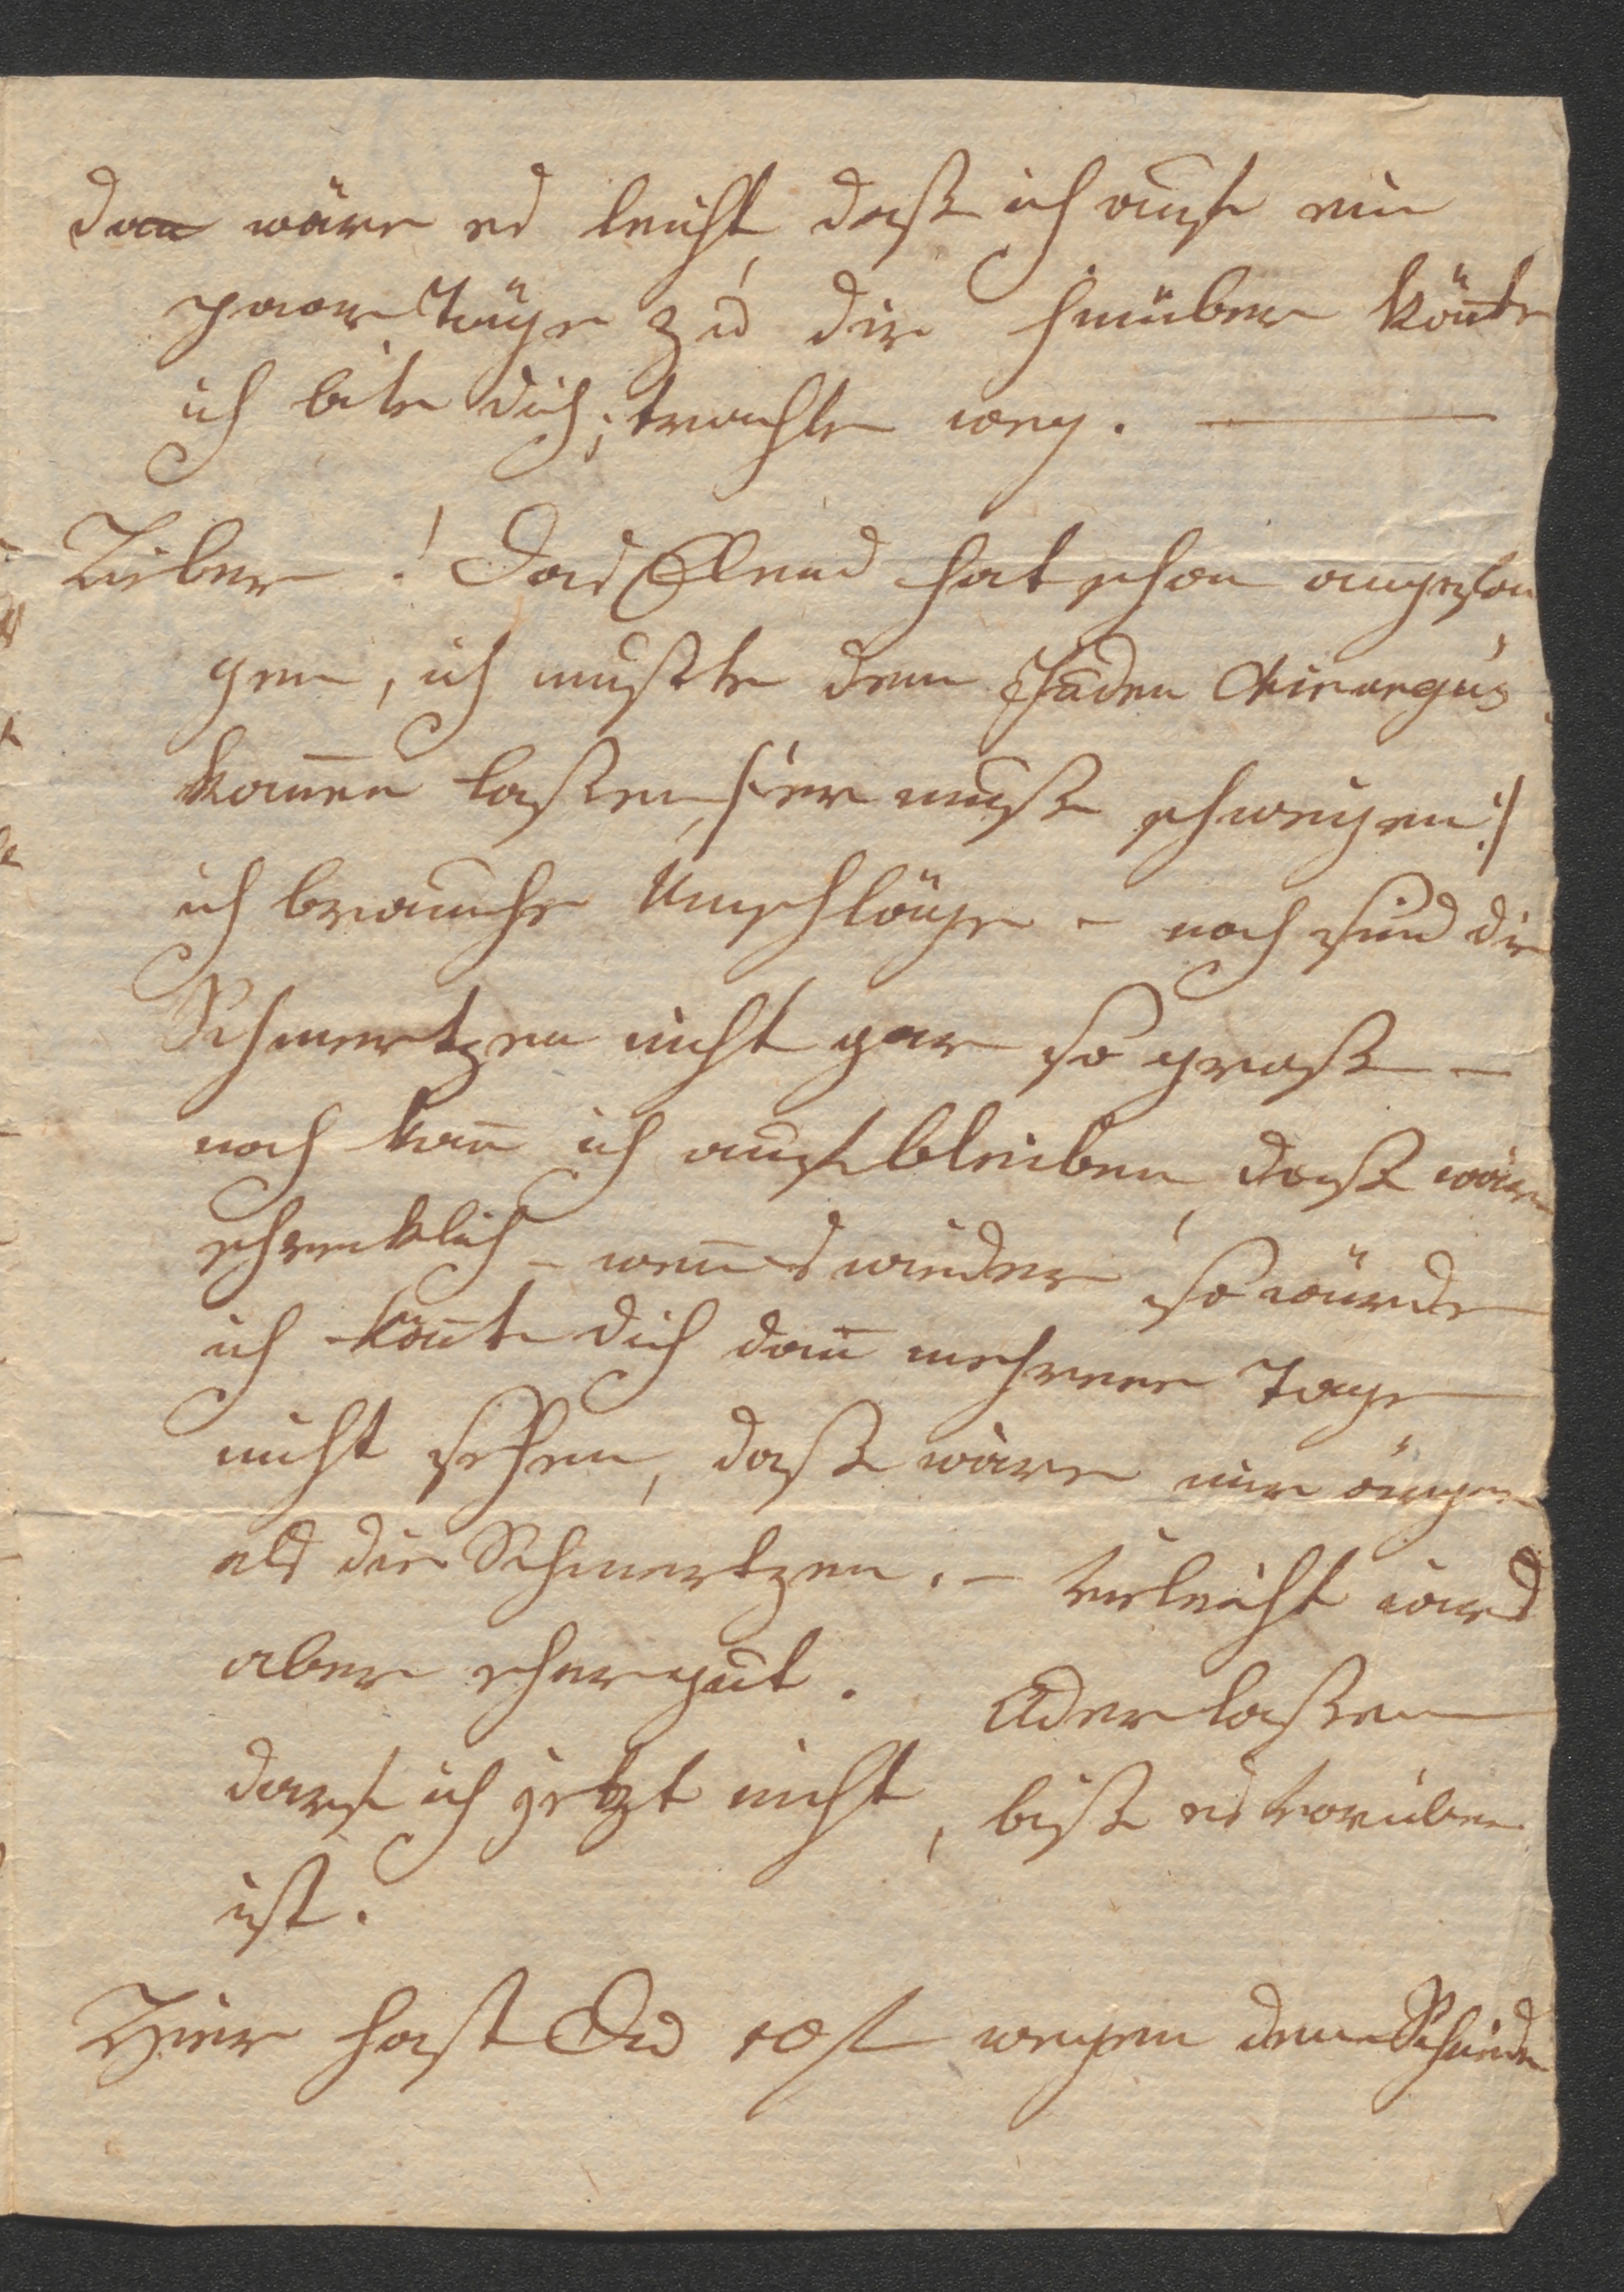 dan̄ wäre es leicht, daß ich auf ein
paar Täge zu dir hinüber kön̄te
ich bite dich, trachte weg. —
Lieber! Das Elend hat schon angefan
gen, ich mußte dem Juden Chirurgus
kom̄en laßen, /: er muß schweigen :/
ich brauche Umschläge – noch sind die
Schmertzen nicht gar so groß –
noch kan̄ ich aufbleiben, daß wäre
schrecklich – wen̄s wieder so würde
ich kön̄te dich dan̄ mehrere Tage
nicht sehen, daß wäre mir ärger
als die Schmertzen. – vieleicht wird
aber eher gut. Aderlaßen
darf ich jetzt nicht, biß es vorüber
ist.
Hier hast Du 10 f wegen dem Schneider